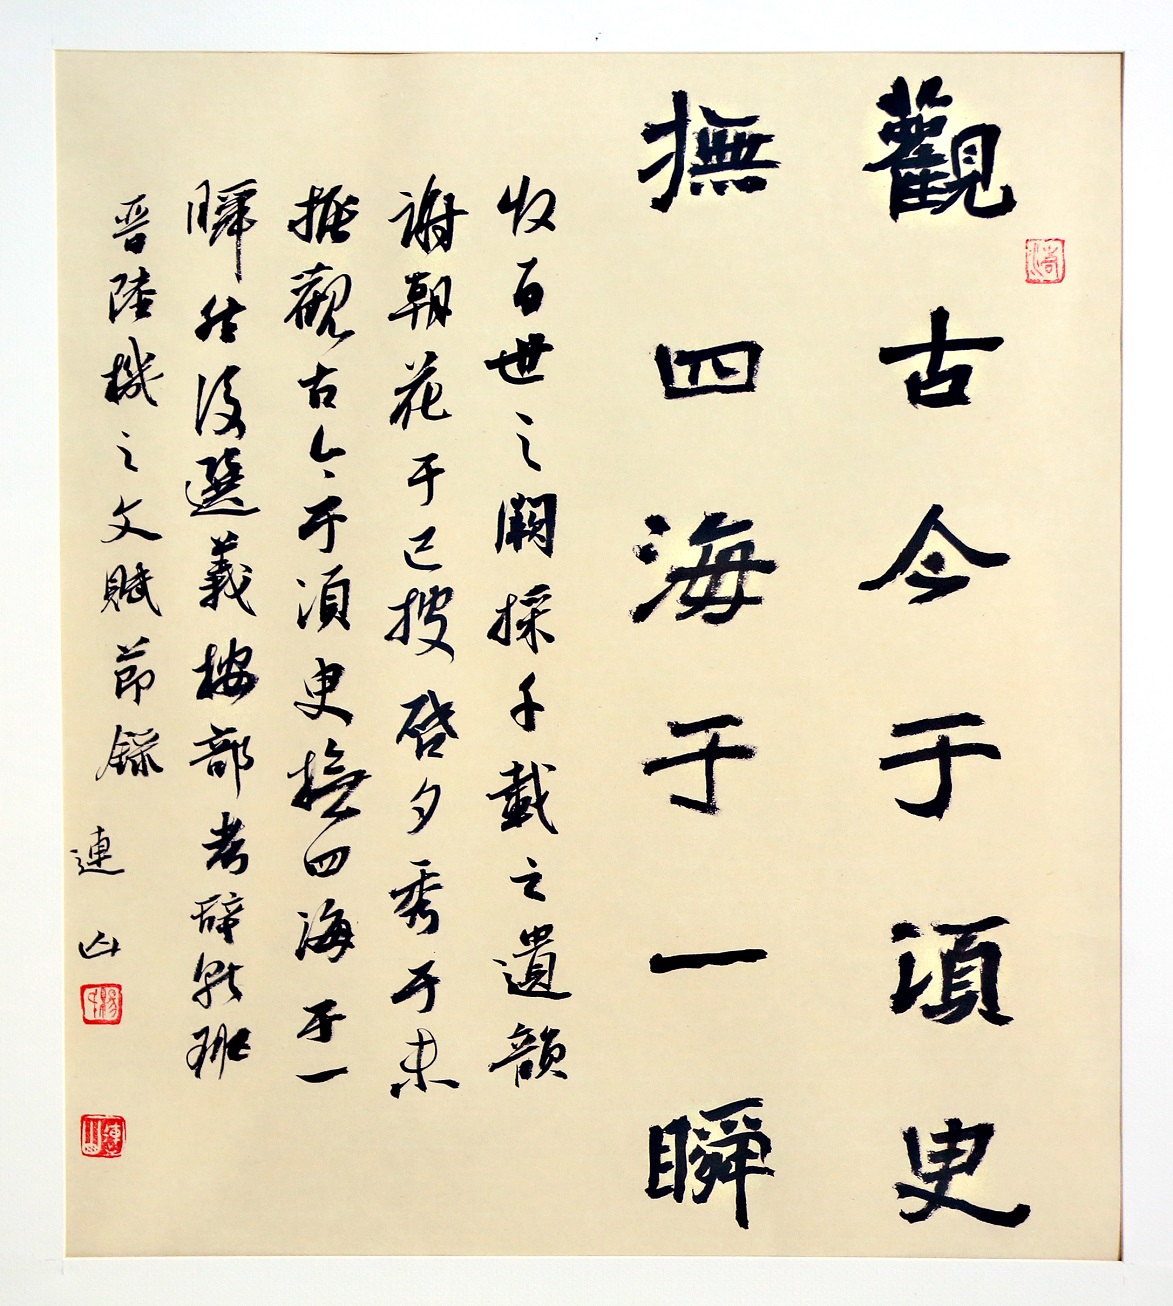 觀古今于須臾
撫四海于一瞬
收百世之闕採千載之遺韻
謝朝花于已披啓夕秀于未
振觀古今于須臾撫四海于一
瞬然後選義按部考辭就班
晋陸機之文賦節錄
連山